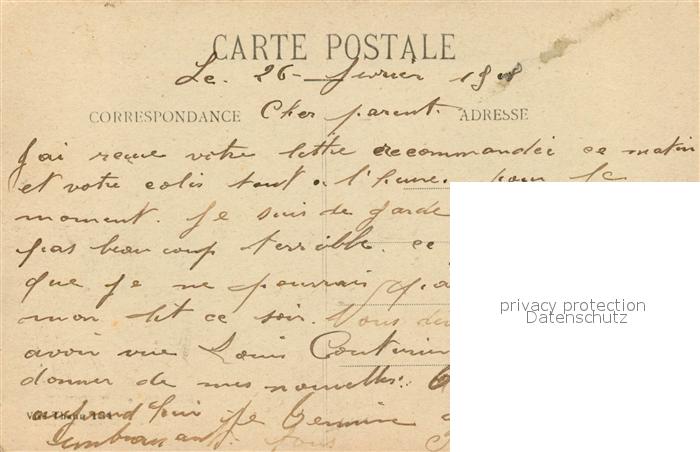 CARTE POSTALE
Le. 26 - fevrier 19
CORRESPONDANCE Cher parent. ADRESSE
J'ai reçue votre lettre recommandée ce matin
et votre colis tout a l'heure. pour le
moment. Je suis de garde
pas beaucoup terrible. ce
que je ne pourrais
mon lit ce soir. Vous
avoir vue Louis Couturier
donner de mes nouvelles.
aujourd'hui je termine
embrassant. tous
privacy protection
Datenschutz